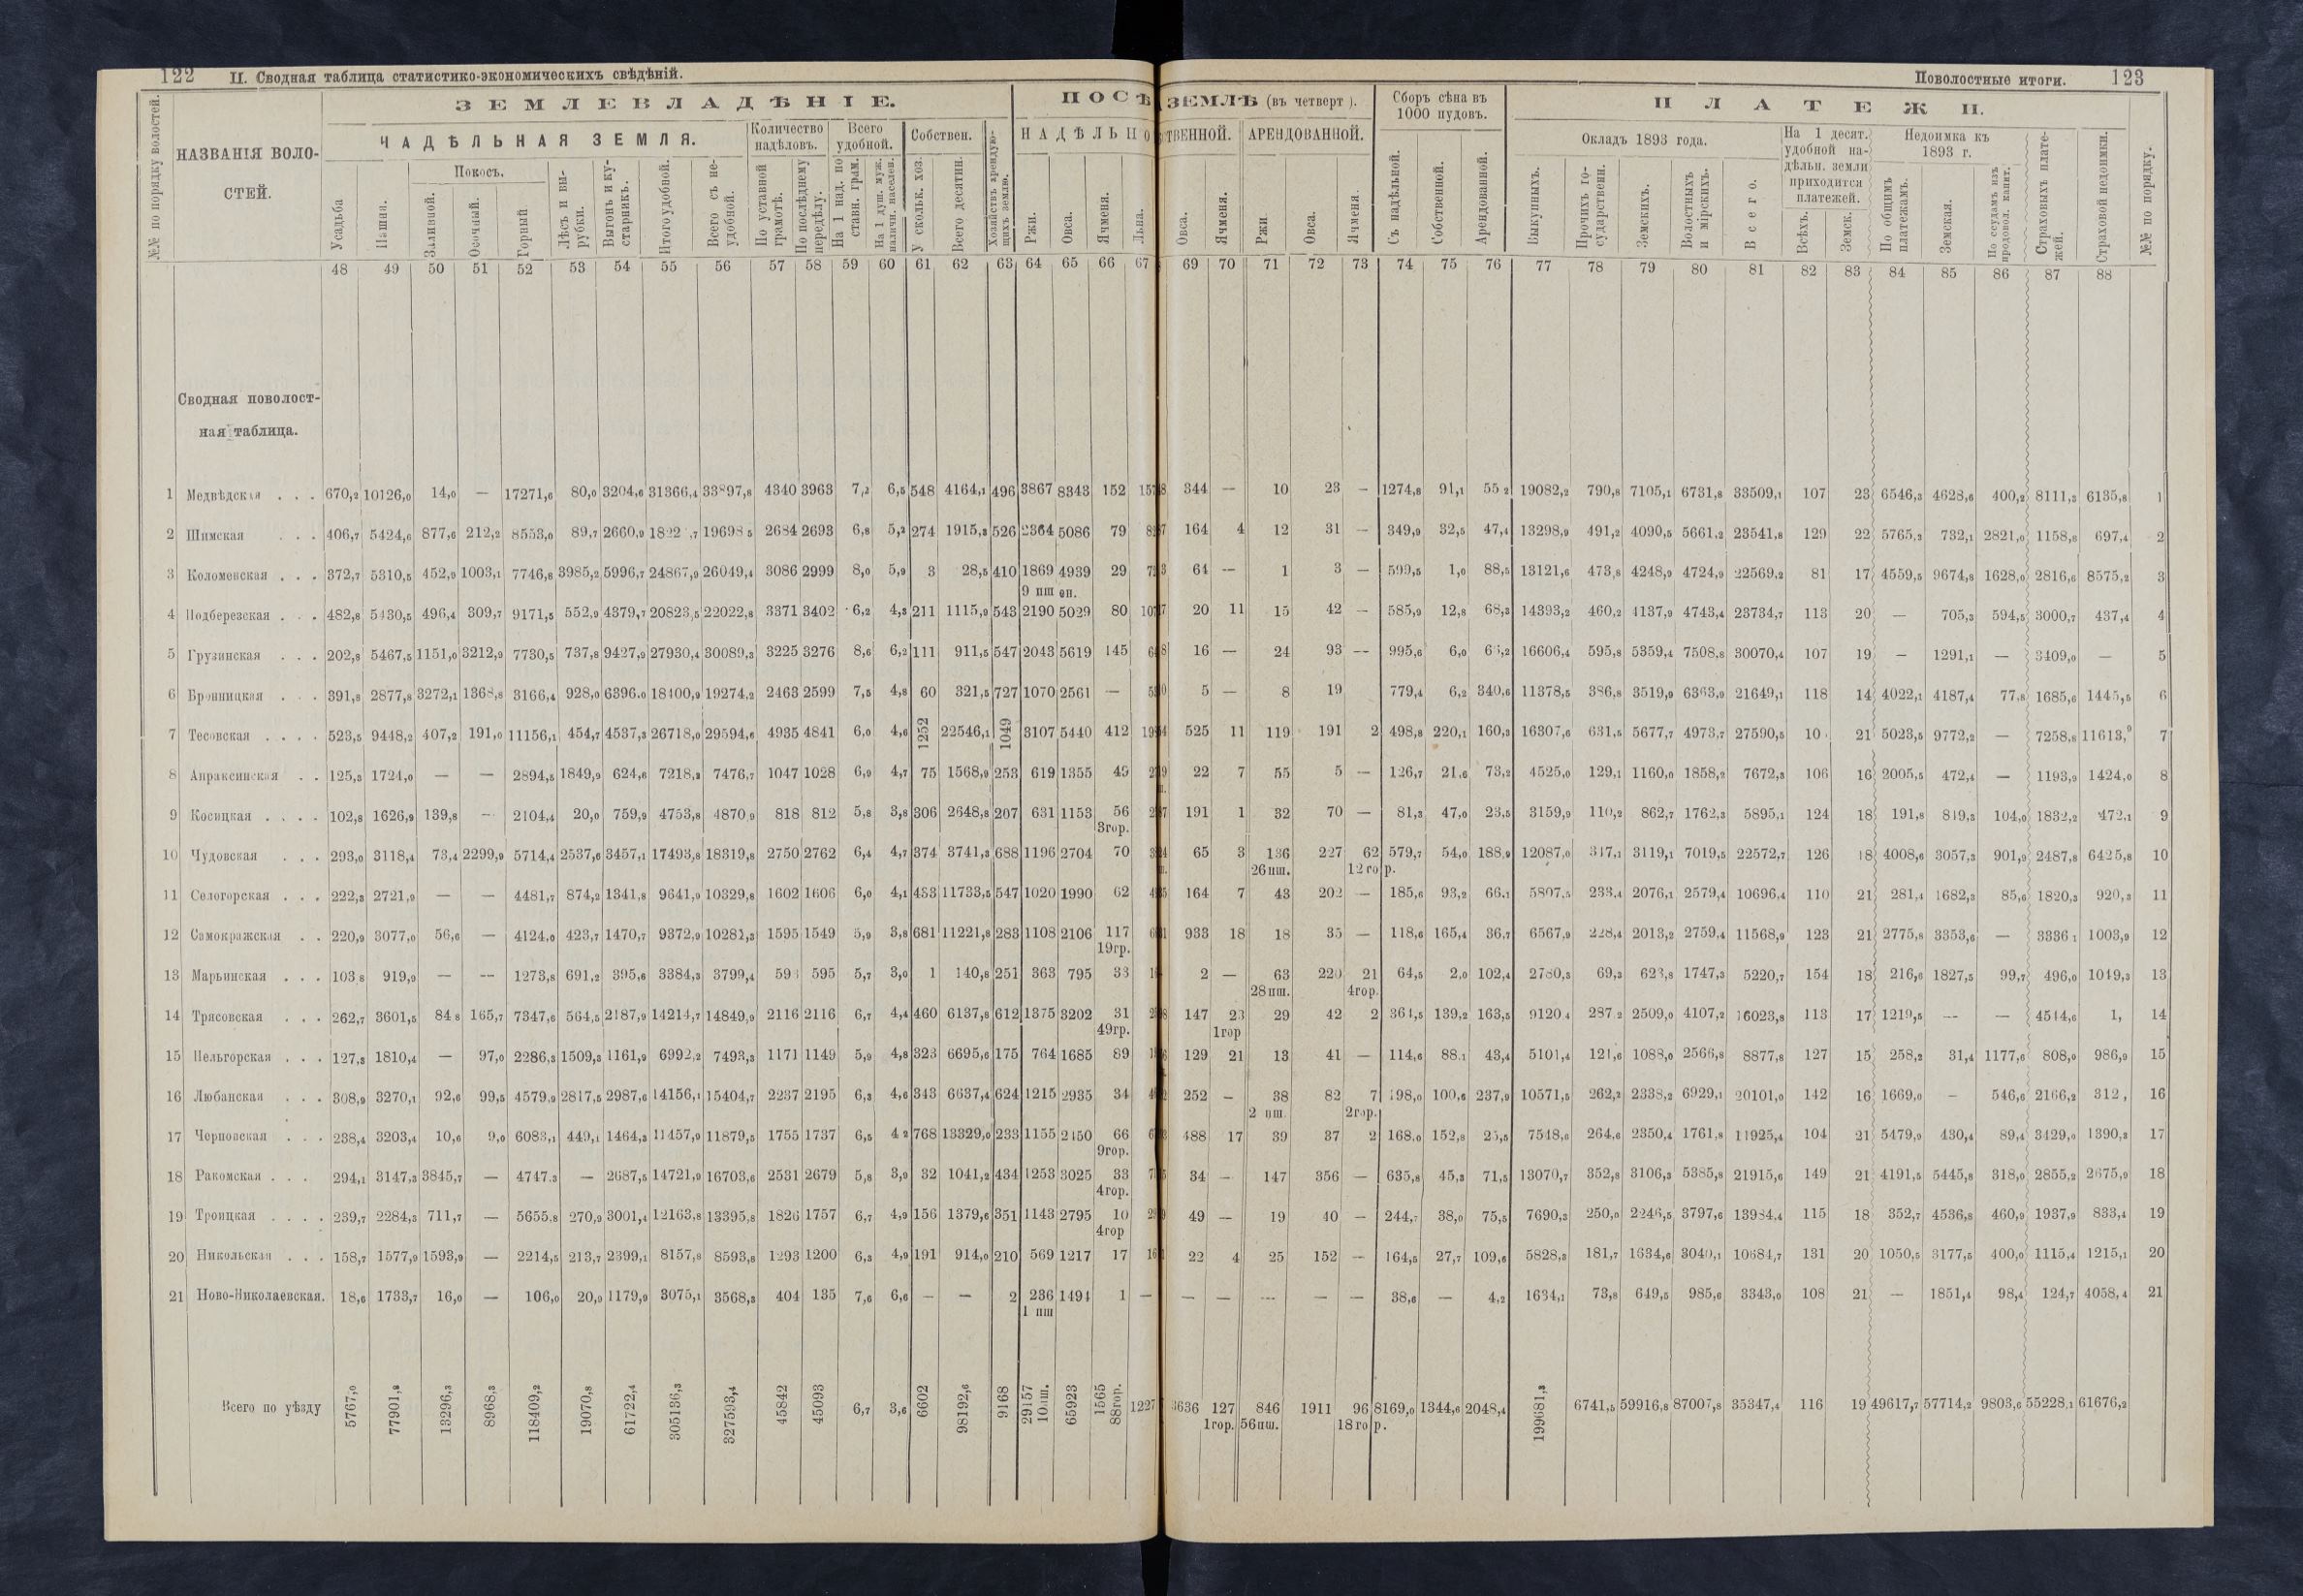 122 II. Сводная таблица статистико-экономическихъ свѣдѣній.
Поволостные итоги. 123
№№ по порядку волостей.
НАЗВАНІЯ ВОЛОСТЕЙ.
ЗЕМЛЕВЛАДѢНІЕ.
НАДѢЛЬНАЯ ЗЕМЛЯ.
Усадьба
Пашни.
Покосъ.
Заливной.
Осочный.
Горный
Лѣсъ и вырубки.
Выгонъ и кустарникъ.
Итого удобной.
Всего съ неудобной.
Количество надѣловъ.
По уставной грамотѣ.
По послѣднему передѣлу.
Всего удобной.
На 1 над. по ставн. грам.
На 1 душ. муж. наличн. населен.
Собствен.
У скольк. хоз.
Всего десятин.
Хозяйствъ арендующихъ землю.
ПОСѢ
НАДѢЛЬНО
Ржи.
Овса.
Ячменя.
Льна.
ЗЕМЛѢ (въ четверт ).
ТВЕННОЙ.
Овса.
Ячменя.
АРЕНДОВАННОЙ.
Ржи
Овса.
Ячменя.
Сборъ сѣна въ 1000 пудовъ.
Съ надѣльной.
Собственной.
Арендованной.
ПЛАТЕЖИ.
Окладъ 1893 года.
Выкупныхъ.
Прочихъ государственн.
Земскихъ.
Волостныхъ и мірскихъ.
Всего.
На 1 десят. удобной надѣльн. земли приходится платежей.
Всѣхъ.
Земск.
Недоимка къ 1893 г.
По общимъ платежамъ.
Земская.
По ссудамъ изъ продовол. капит.
Страховыхъ платежей.
Страховой недоимки.
№№ по порядку.
48 49 50 51 52 53 54 55 56 57 58 59 60 61 62 63 64 65 66 67 69 70 71 72 73 74 75 76 77 78 79 80 81 82 83 84 85 86 87 88
Сводная поволостная таблица.
1 Медвѣдская . . . 670,2 10126,0 14,0 — 17271,6 80,0 3204,6 31366,4 4340 3963 7,2 6,5 548 4164,1 496 3867 8343 152 344 — 10 23 — 1274,8 91,1 55 2 19082,2 790,8 7105,1 6731,8 33509,1 107 23 6546,3 4628,6 400,2 8111,3 6135,8 1
2 Шимская . . . 406,7 5424,6 877,6 212,2 8553,0 89,7 2660,9 19698 5 2684 2693 6,8 5,2 274 1915,3 526 2364 5086 79 164 4 12 31 — 349,9 32,5 47,4 13298,9 491,2 4090,5 5661,2 23541,8 129 22 5765,3 732,1 2821,0 1158,8 697,4 2
3 Коломенская . . . 372,7 5310,5 452,9 1003,1 7746,8 3985,2 5996,7 24867,9 26049,4 3086 2999 8,0 5,9 3 28,5 410 1869 4939 29 64 — 1 3 — 599,5 1,0 88,5 13121,6 473,8 4248,9 4724,9 22569,2 81 17 4559,5 9674,8 1628,0 2816,6 8575,2 3
9 пш ен.
4 Подберезская . . . 482,8 5430,5 496,4 309,7 9171,5 552,9 4379,7 20823,5 22022,8 3371 3402 6,2 4,3 211 1115,9 543 2190 5029 80 20 11 15 42 — 585,9 12,8 68,3 14393,2 460,2 4137,9 4743,4 23734,7 113 20 — 705,3 594,5 3000,7 437,4 4
5 Грузинская . . . 202,8 5467,5 1151,0 3212,9 7730,5 737,8 9427,9 27930,4 30089,3 3225 3276 8,6 6,2 111 911,5 547 2043 5619 145 16 — 24 93 — 995,6 6,0 16606,4 595,8 5359,4 7508,8 30070,4 107 19 — 1291,1 — 3409,0 — 5
6 Бронницкая . . . 391,8 2877,8 3272,1 1368,8 3166,4 928,0 6396,0 18400,9 19274,2 2463 2599 7,5 4,8 60 321,5 727 1070 2561 — 5 — 8 19 779,4 6,2 340,6 11378,5 386,8 3519,9 6363,9 21649,1 118 14 4022,1 4187,4 77,8 1685,6 1445,5 6
7 Тесовская . . . . 523,5 9448,2 407,2 191,0 11156,1 454,7 4537,3 26718,0 29594,6 4935 4841 6,0 4,6 1252 22546,1 1049 3107 5440 412 525 11 119 191 2 498,8 220,1 160,3 16307,6 631,5 5677,7 4973,7 27590,5 21 5023,5 9772,2 — 7258,8 11613,9 7
8 Апраксинская . . 125,3 1724,0 — — 2894,5 1849,9 624,6 7218,3 7476,7 1047 1028 6,9 4,7 75 1568,9 253 619 1355 49 22 7 55 5 — 126,7 21,6 73,2 4525,0 129,1 1160,0 1858,2 7672,3 106 16 2005,5 472,4 — 1193,9 1424,0 8
9 Косицкая . . . . 102,8 1626,9 139,8 — 2104,4 20,0 759,9 4753,8 4870,9 818 812 5,8 3,8 306 2648,8 207 631 1153 56 191 1 32 70 — 81,3 47,0 23,5 3159,9 110,2 862,7 1762,3 5895,1 124 18 191,8 819,3 104,0 1832,2 472,1 9
3гор.
10 Чудовская . . . 293,0 3118,4 73,4 2299,9 5714,4 2537,6 3457,1 17493,8 18319,8 2750 2762 6,4 4,7 374 3741,3 688 1196 2704 70 65 3 136 227 62 579,7 54,0 188,9 12087,0 317,1 3119,1 7019,5 22572,7 126 18 4008,6 3057,3 901,9 2487,8 6425,8 10
26пш. 12 го р.
11 Сологорская . . . 222,3 2721,9 — — 4481,7 874,2 1341,8 9641,9 10329,8 1602 1606 6,0 4,1 483 11733,5 547 1020 1990 62 164 7 43 202 — 185,6 93,2 66,1 5807,5 233,4 2076,1 2579,4 10696,4 110 21 281,4 1682,3 85,6 1820,3 920,3 11
12 Самокражская . . 220,9 3077,0 56,6 — 4124,0 423,7 1470,7 9372,9 10282,3 1595 1549 5,9 3,8 681 11221,8 283 1108 2106 117 933 18 18 35 — 118,6 165,4 36,7 6567,9 228,4 2013,2 2759,4 11568,9 123 21 2775,8 3353,6 — 3336 1 1003,9 12
19гр.
13 Марьинская . . . 103 8 919,9 — — 1273,8 691,2 395,6 3384,3 3799,4 595 5,7 3,0 1 140,8 251 363 795 33 2 — 63 220 21 64,5 2,0 102,4 2780,3 69,3 623,8 1747,3 5220,7 154 18 216,6 1827,5 99,7 496,0 1049,3 13
28пш. 4гор.
14 Трясовская . . . 262,7 3601,5 84 8 165,7 7347,6 564,5 2187,9 14214,7 14849,9 2116 2116 6,7 4,4 460 6137,8 612 1375 3202 31 147 23 29 42 2 364,5 139,2 163,5 9120 4 287 2 2509,0 4107,2 16023,8 113 17 1219,5 — — 4544,6 1, 14
49гр. 1гор
15 Пельгорская . . . 127,3 1810,4 — 97,0 2286,3 1509,3 1161,9 6992,2 7493,3 1171 1149 5,9 4,8 323 6695,6 175 764 1685 89 129 21 13 41 — 114,6 88,1 43,4 5101,4 121,6 1088,0 2566,8 8877,8 127 15 258,2 31,4 1177,6 808,0 986,9 15
16 Любанская . . . 308,9 3270,1 92,6 99,5 4579,9 2817,5 2987,6 14156,1 15404,7 2237 2195 6,3 4,6 343 6637,4 624 1215 2935 34 252 — 38 82 7 198,0 100,6 237,9 10571,5 262,2 2338,2 6929,1 20101,0 142 16 1669,0 — 546,6 2166,2 312, 16
2 пш. 2гор.
17 Черновская . . . 238,4 3203,4 10,6 9,0 6083,1 449,1 1464,3 11457,9 11879,5 1755 1737 6,5 4 2 768 13329,0 233 1155 2450 66 488 17 39 37 2 168,0 152,8 25,5 7548,6 264,6 2350,4 1761,8 11925,4 104 21 5479,9 430,4 89,4 3429,0 1390,3 17
9гор.
18 Ракомская . . . 294,1 3147,3 3845,7 — 4747,3 — 2687,5 14721,9 16703,6 2531 2679 5,8 3,9 32 1041,2 434 1253 3025 33 34 — 147 356 — 635,8 45,3 71,5 13070,7 352,8 3106,3 5385,8 21915,6 149 21 4191,5 5445,8 318,0 2855,2 2675,9 18
4гор.
19 Троицкая . . . . 239,7 2284,3 711,7 — 5655,8 270,9 3001,4 12163,8 13395,8 1826 1757 6,7 4,9 156 1379,6 351 1143 2795 10 49 — 19 40 — 244,7 38,0 75,5 7690,3 250,0 2246,5 3797,6 13984,4 115 18 352,7 4536,8 460,9 1937,9 833,4 19
4гор
20 Никольская . . . 158,7 1577,9 1593,9 — 2214,5 213,7 2399,1 8157,8 8593,8 1293 1200 6,3 4,9 191 914,0 210 569 1217 17 22 4 25 152 — 164,5 27,7 109,6 5828,3 181,7 1634,6 3040,1 10684,7 131 20 1050,5 3177,5 400,0 1115,4 1215,1 20
21 Ново-Николаевская. 18,6 1733,7 16,0 — 106,0 20,9 1179,9 3075,1 3568,3 404 135 7,6 6,6 — — 2 236 1494 1 — — — — — — 38,6 — 4,2 1634,1 73,8 649,5 985,6 3343,0 108 21 — 1851,4 98,4 124,7 4058,4 21
1 пш
Всего по уѣзду 5767,0 77901,8 13296,3 8968,3 118409,2 19070,8 61722,4 305136,3 327593,4 45842 45093 6,7 3,6 6602 98192,6 9168 29157 65923 1565 1227 3636 127 846 1911 96 8169,0 1344,6 2048,4 199681,3 6741,5 59916,8 87007,8 35347,4 116 19 49617,7 57714,2 9803,6 55228,1 61676,2
10пш. 88гор. 1гор. 56пш. 18 го р.